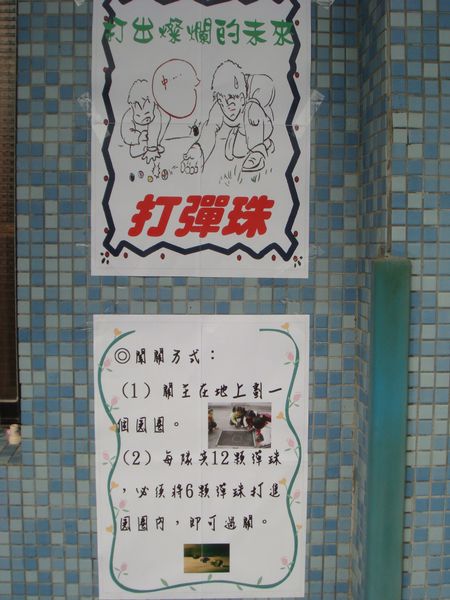 打出燦爛的未來
中
打彈珠
◎闖關方式：
（1）關主在地上劃一
個圓圈。
（2）每隊夾12顆彈珠
，必須將6顆彈珠打進
圓圈內，即可過關。